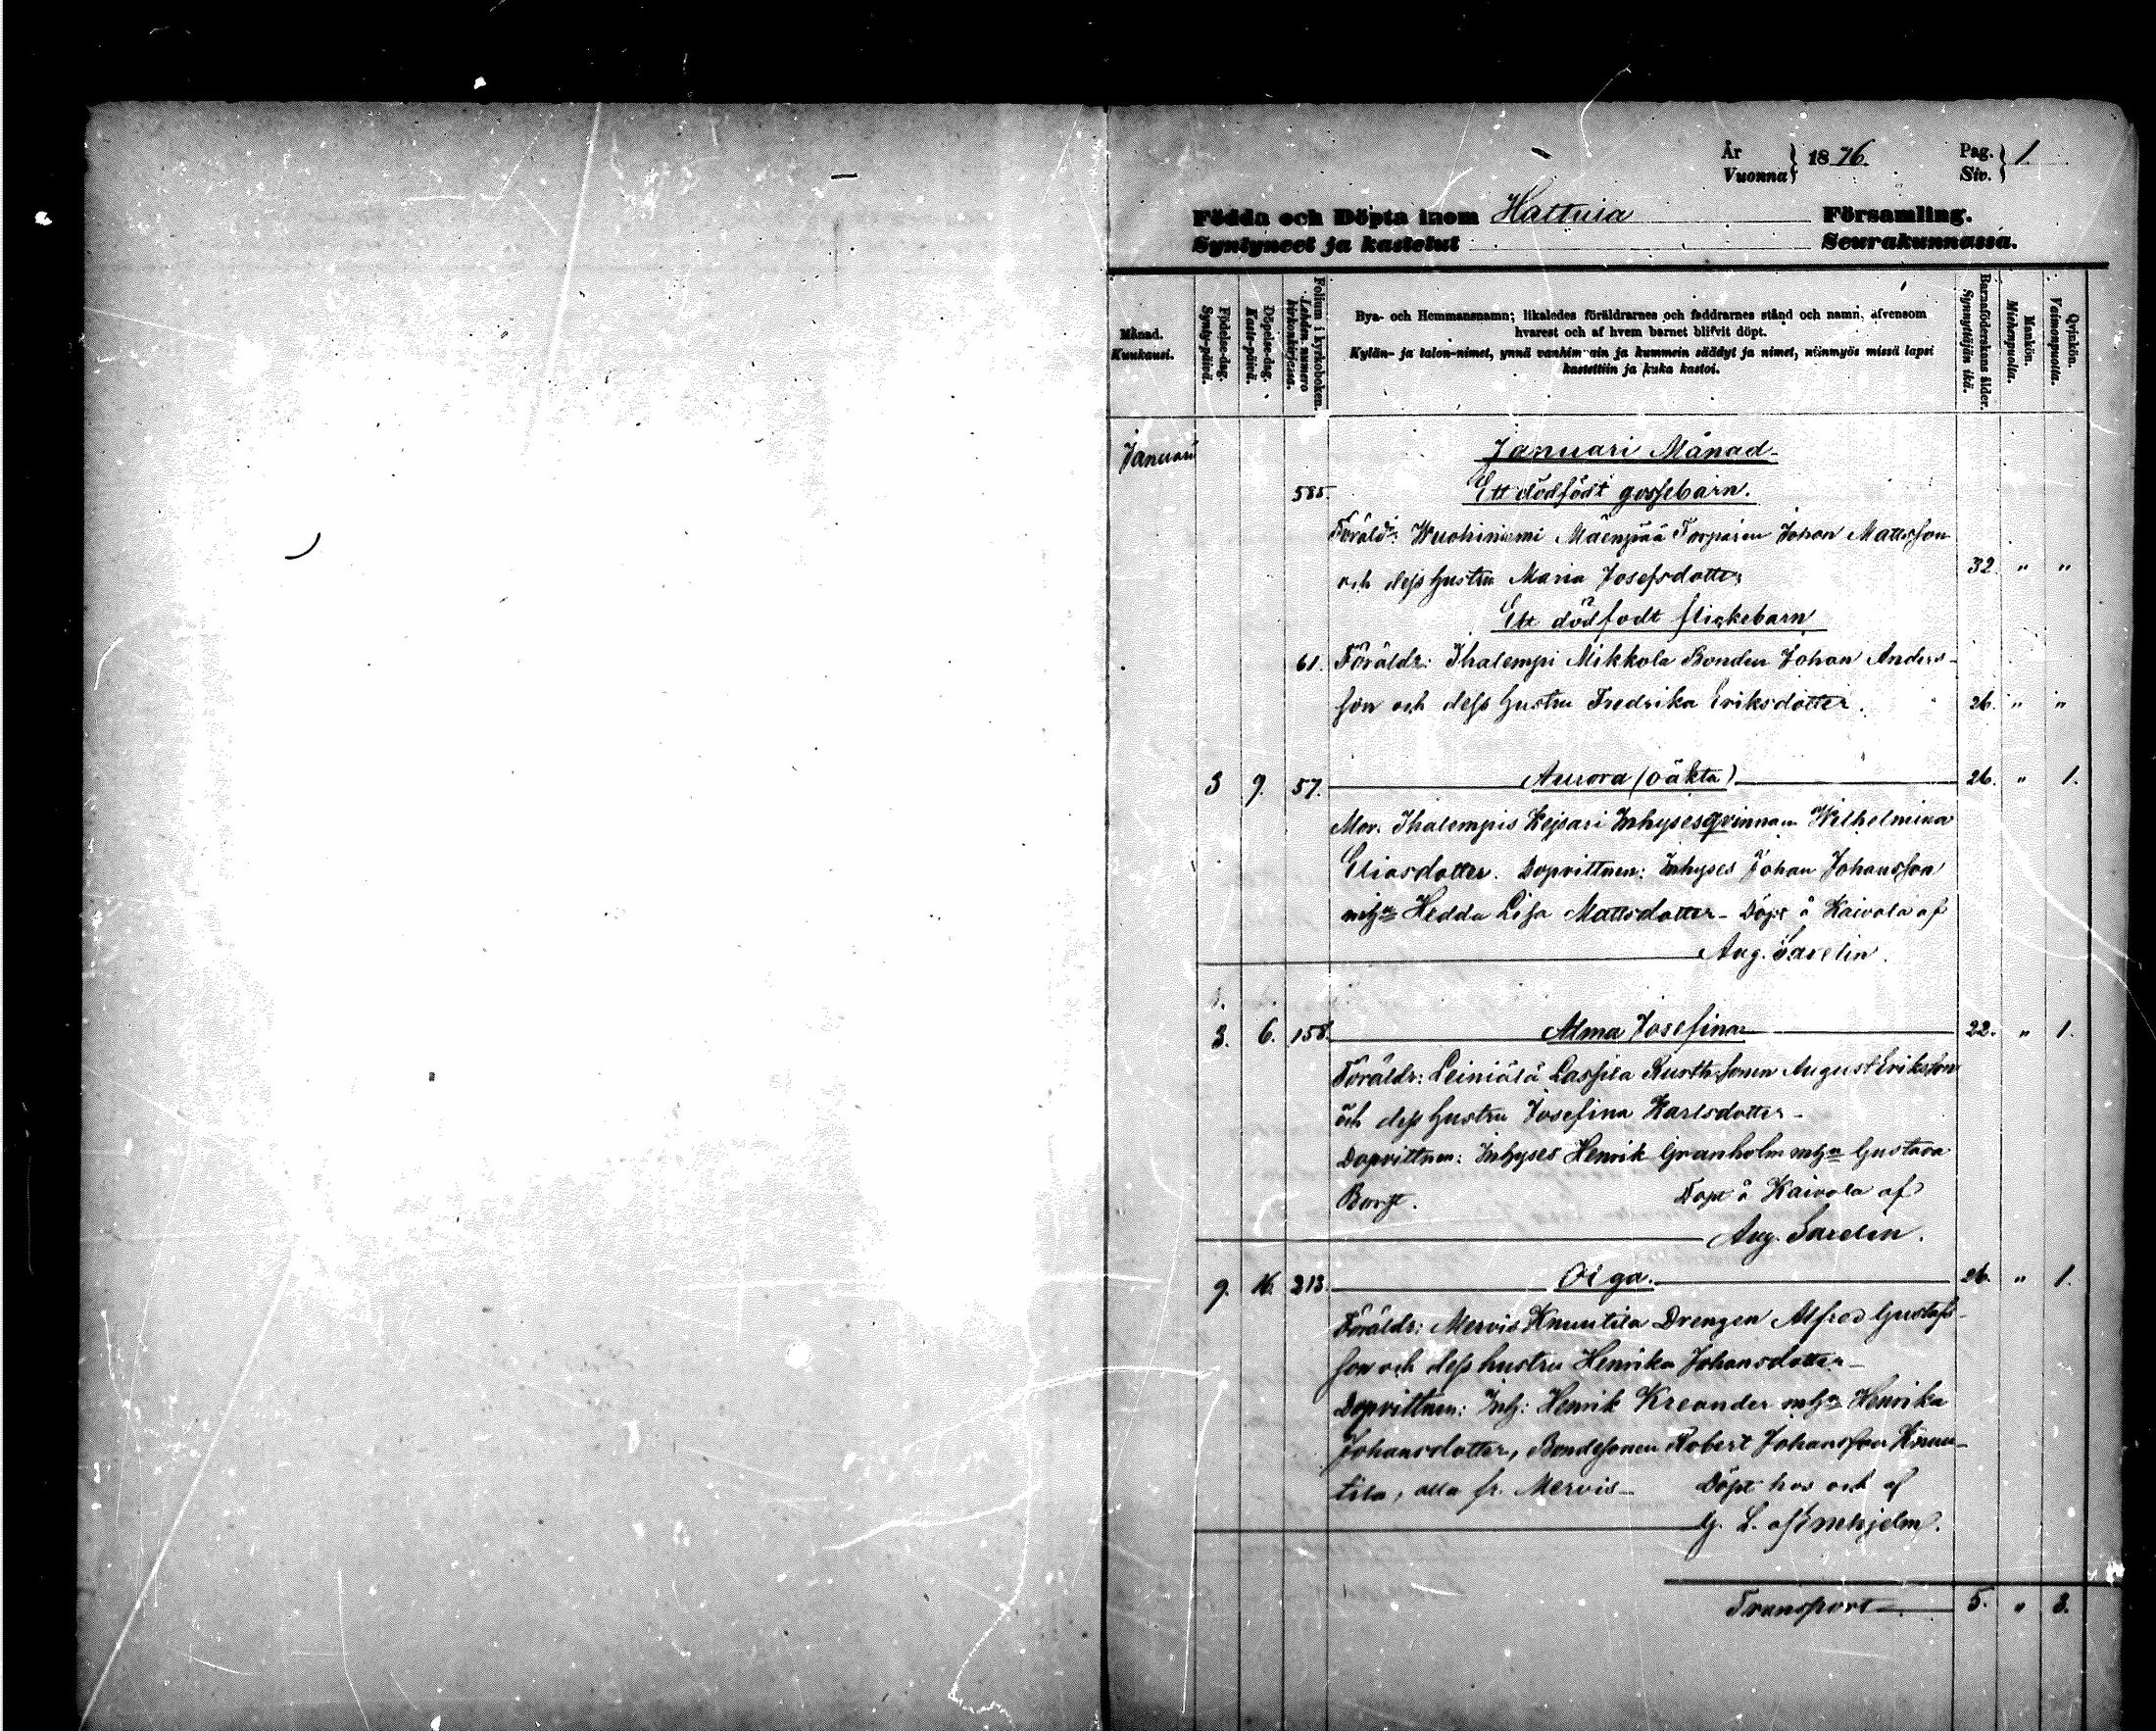 År
Vuonna } 1876. Pag.
Siv. } 1
Födda och Döpta inom Hattula Församling.
Syntyneet ja kastetut Seurakunnassa.
Månad.
Kuukausi.
Födelse-dag.
Synty-päivä.
Döpelse-dag.
Kaste-päivä.
Folium i kyrkoboken.
Lehden numero
kirkonkirjassa.
Bya- och Hemmansnamn; likaledes föräldrarnes och faddrarnes stånd och namn, äfvensom
hvarest och af hvem barnet blifvit döpt.
Kylän- ja talon-nimet, ynnä vanhimpain ja kummein säädyt ja nimet, niinmyös missä lapsi
kastettiin ja kuka kastoi.
Barnaföderskans ålder.
Synnyttäjän ikä.
Mankön.
Miehenpuolia.
Qvinkön.
Vaimonpuolia.
Januari Januari Månad
585. Ett dödfödt gossebarn.
Föräldr: Wuohiniemi Mäenpää Torparen Johan Mattsson
och dess hustru Maria Josefsdotter 32. " "
Ett dödfödt flickebarn
61. Föräldr: Ihalempi Mikkola Bonden Johan Anders-
son och dess hustru Fredrika Eriksdotter. 26. " "
3 9. 57. Aurora (oäkta) 26. " 1.
Mor: Ihalempis Kejsari Inhysesqvinnan Wilhelmina
Eliasdotter. Dopvittnen: Inhyses Johan Johansson
mh:u Hedda Lisa Mattsdotter - Döpt å Kaivola af
Aug. Sarelin.
3. 6. 158. Alma Josefina 22. " 1.
Föräldr: Leiniälä Lassila Rusth:sonen August Eriksson
och dess hustru Josefina Karlsdotter -
Dopvittnen: Inhyses Henrik Granholm mh:u Gustava
Borg. Döpt å Kaivola af
Aug. Sarelin.
9. 16. 213. Olga. 26. " 1.
Föräldr: Mervis Knuutila Drengen Alfred Gustafs-
son och dess hustru Henrika Johansdotter -
Dopvittnen: Inh: Henrik Kreander mh:u Henrika
Johansdotter, Bondesonen Robert Johansson Knuu-
tila, alla fr. Mervis - Döpt hos och af
G. L. af Enehjelm.
Transport 5. " 3.